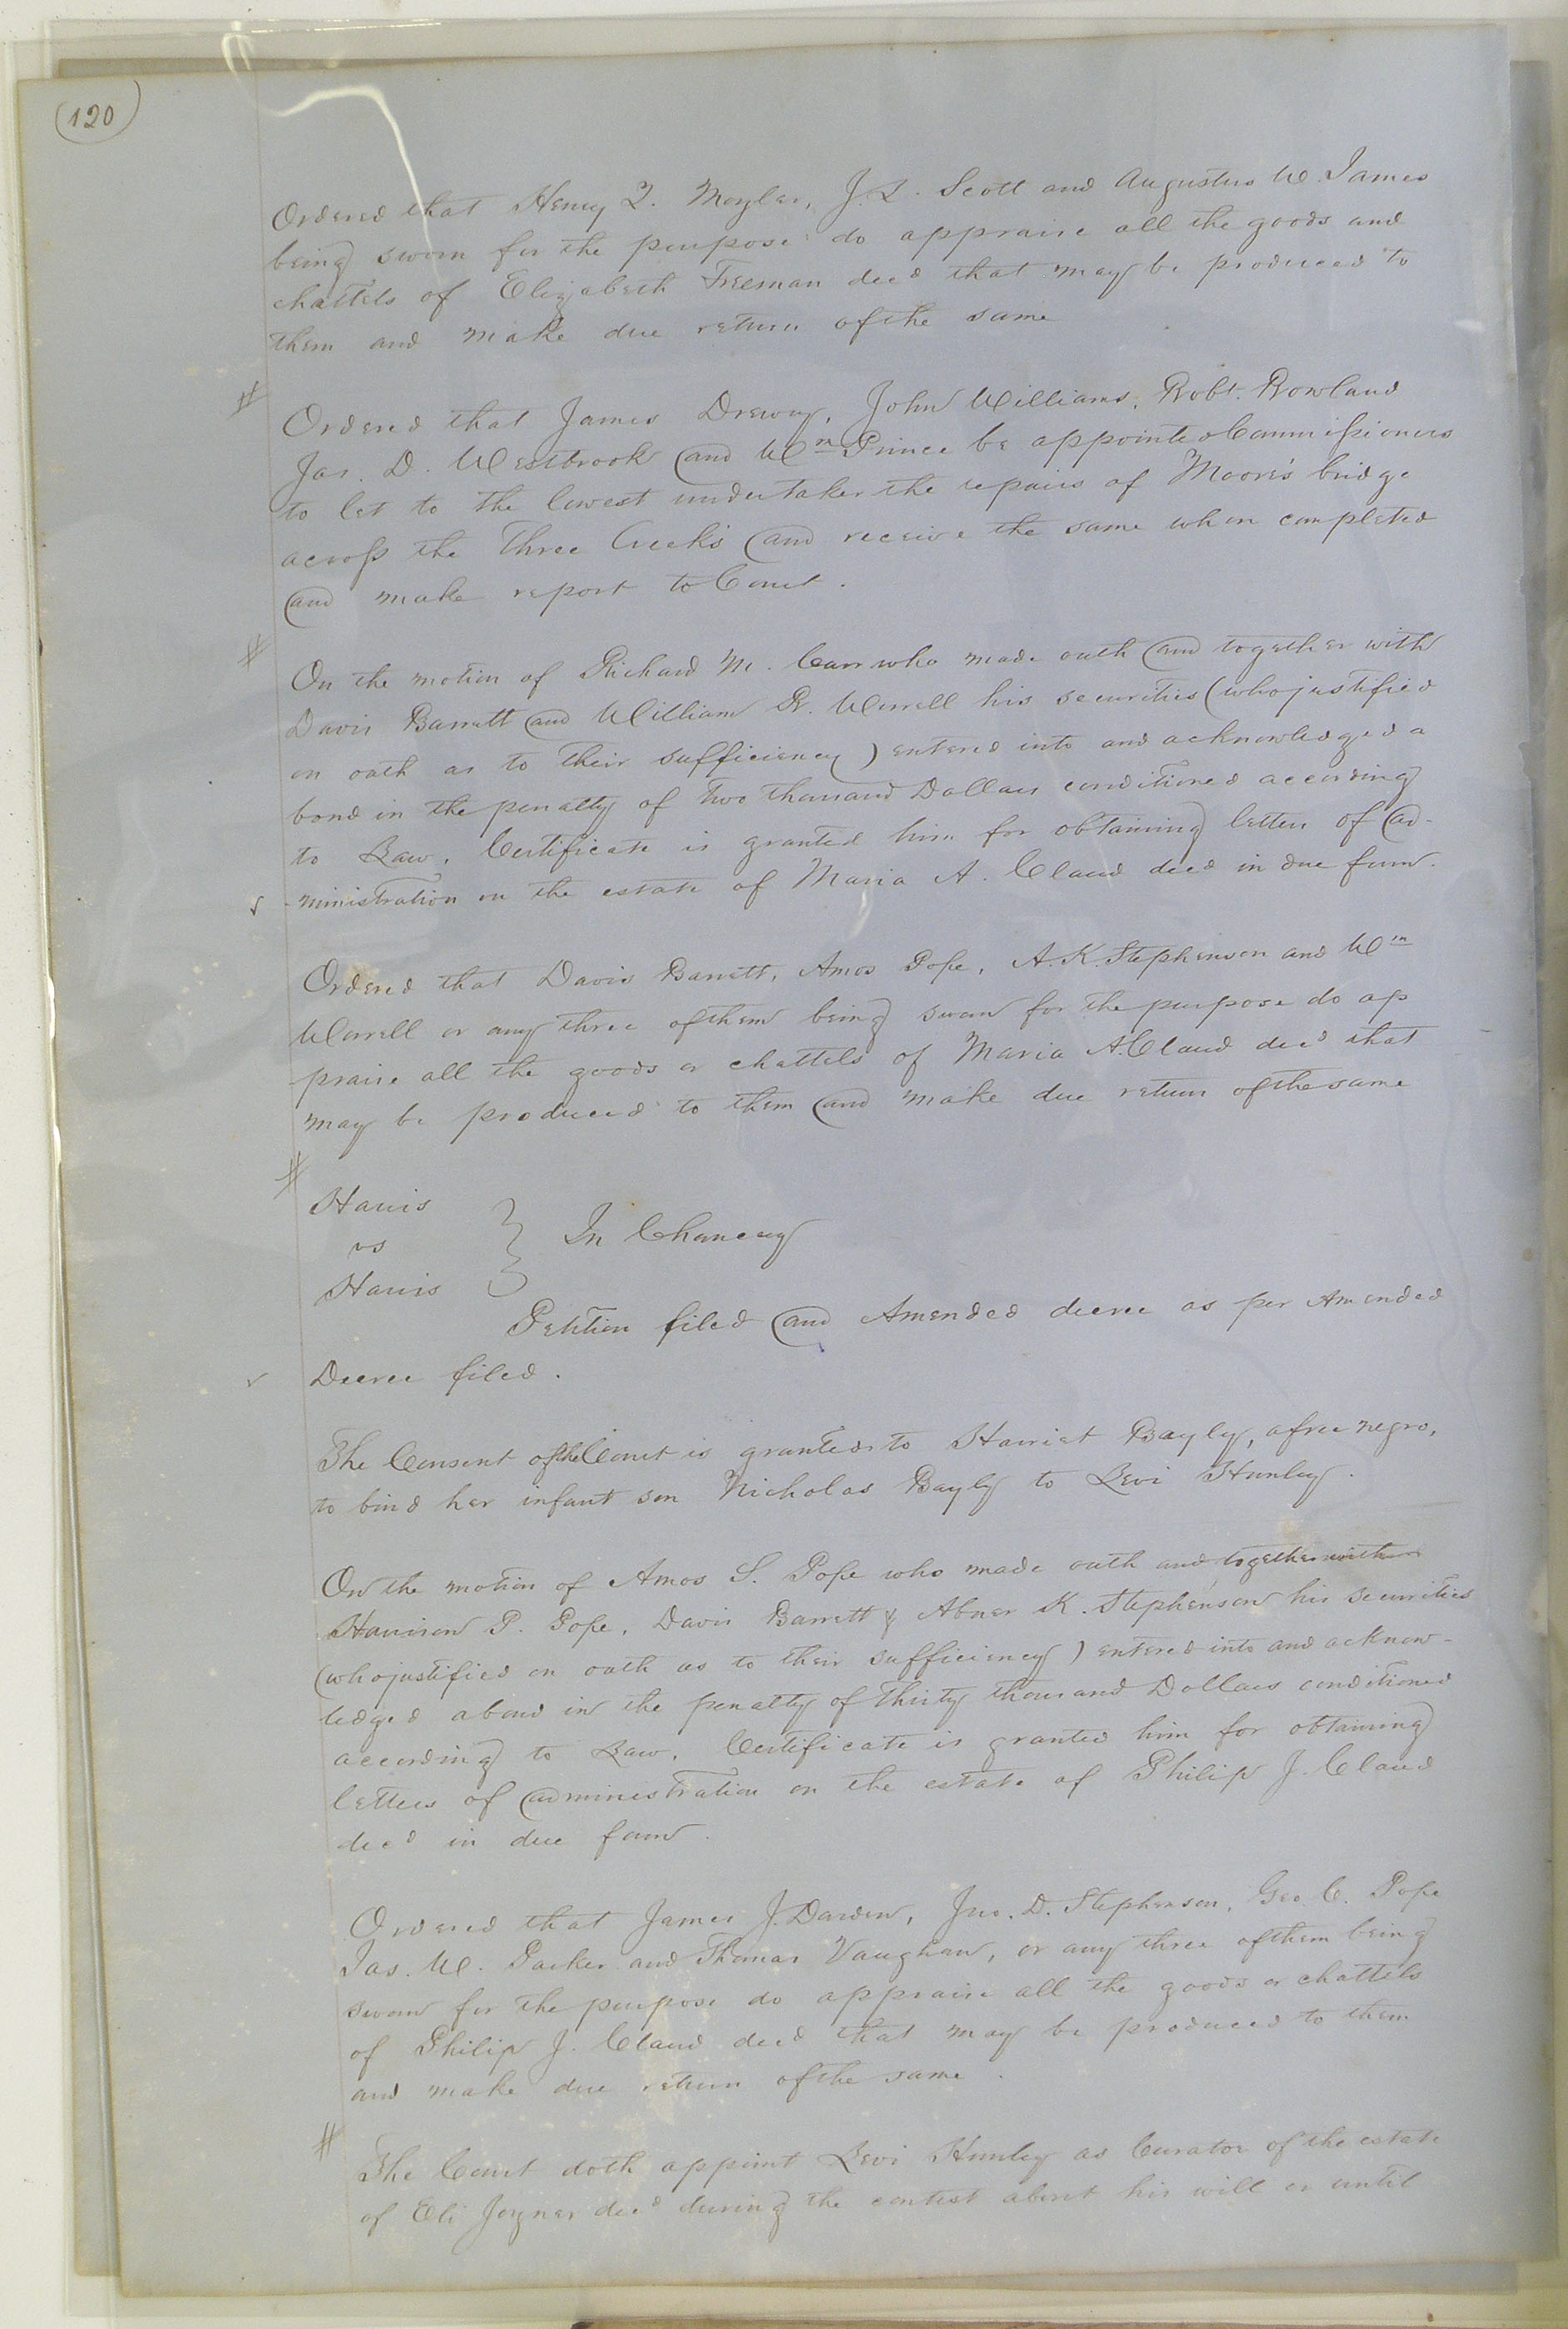 (120)
Ordered that Henry T. Moyler, J. L. Scott and Augustus W. James
being sworn for the purpose do appraise all the goods and
chattels of Elizabeth Freeman decd that may be produced to
them and make due return of the same
#
Ordered that James Drewry, John Williams, Robt. Rowland
Jas. D. Westbrook and Wm Prince be appointed Commissioners
to let to the lowest undertaker the repairs of Moore's bridge
across the Three Creeks and receive the same when completed
and make report to Court.
#
On the motion of Richard M. Carr who made oath and together with
Davis Barrett and William R. Worrell his securities (who justified
on oath as to their sufficiency) entered into and acknowledged a
bond in the penalty of two thousand Dollars conditioned according
to Law, Certificate is granted him for obtaining letters of ad-
ministration on the estate of Maria A. Claud decd in due form.
Ordered that Davis Barrett, Amos Pope, A. K. Stephenson and Wm
Worrell or any three of them being sworn for the purpose do ap
praise all the goods or chattels of Maria A. Claud decd that
may be produced to them and make due return of the same
#
Harris
vs } In Chancery
Harris
Petition filed and Amended decree as per Amended
Decree filed.
The Consent of the Court is granted to Harriet Bayly, a free negro,
to bind her infant son Nicholas Bayly to Levi Hunley.
On the motion of Amos S. Pope who made oath and together with
Harrison P. Pope, Davis Barrett & Abner K. Stephenson his securities
(who justified on oath as to their sufficiency) entered into and acknow-
ledged a bond in the penalty of thirty thousand Dollars conditioned
according to Law, Certificate is granted him for obtaining
letters of administration on the estate of Philip J. Claud
decd in due form.
Ordered that James J. Darden, Jno. D. Stephenson, Geo. C. Pope
Jas. W. Parker and Thomas Vaughan, or any three of them being
sworn for the purpose do appraise all the goods or chattels
of Philip J. Claud decd that may be produced to them
and make due return of the same.
#
The Court doth appoint Levi Hunley as Curator of the estate
of Eli Joyner decd during the contest about his will or until